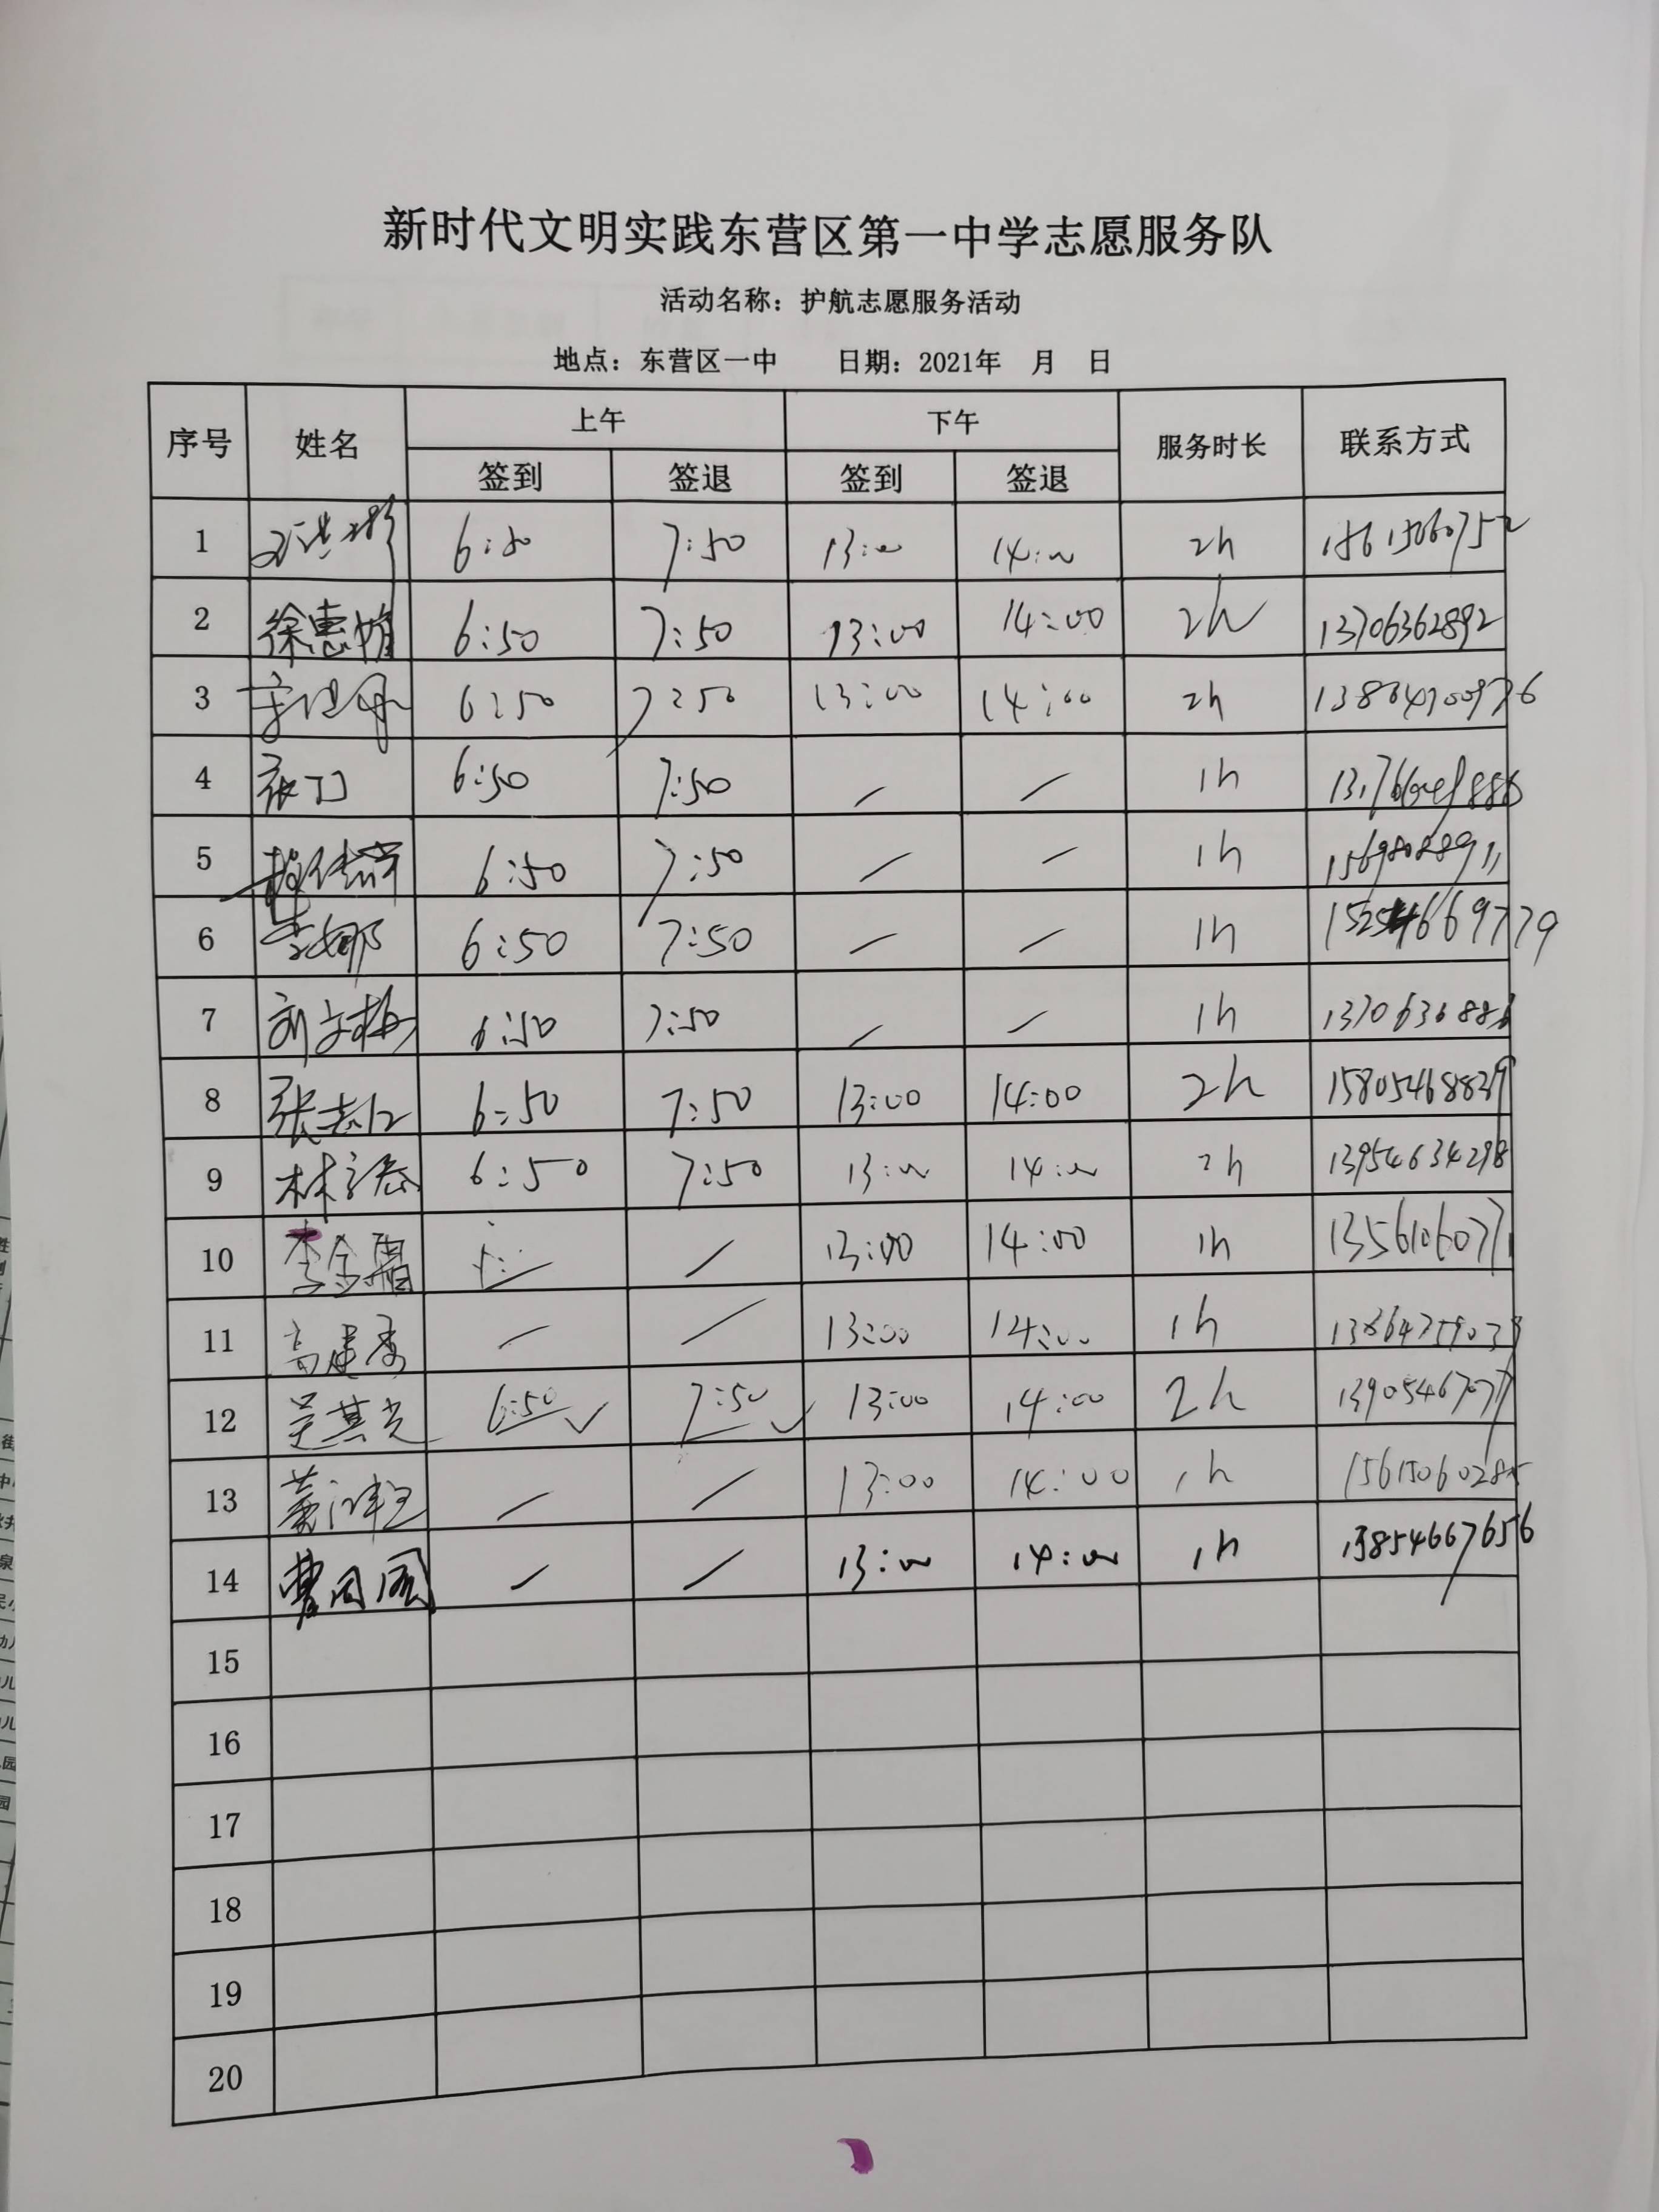 新时代文明实践东营区第一中学志愿服务队
活动名称：护航志愿服务活动
地点：东营区一中 日期：2021年 月 日
序号 姓名 上午 下午 服务时长 联系方式
签到 签退 签到 签退
1 6:50 7:50 13:00 14:00 2h 15615060752
2 徐惠 6:50 7:50 13:00 14:00 2h 13706362892
3 6:50 7:50 13:00 14:00 2h
4 6:50 7:50 / / 1h
5 6:50 7:50 / / 1h
6 李娜 6:50 7:50 / / 1h 15254669779
7 刘文梅 6:50 7:50 / / 1h
8 张志仁 6:50 7:50 13:00 14:00 2h 15805468839
9 林 6:50 7:50 13:00 14:00 2h 13954634298
10 李金霜 / 13:00 14:00 1h
11 高建秀 / / 13:00 14:00 1h
12 吴其光 6:50 ✓ 7:50 ✓ 13:00 14:00 2h
13 / / 13:00 14:00 1h 15615060285
14 曹 / / 13:00 14:00 1h 13854667656
15
16
17
18
19
20